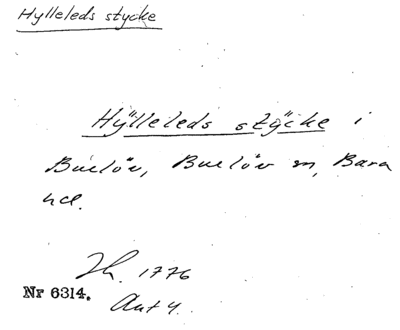 Hylleleds stycke
Hÿlleleds stÿcke i
Burlöv, Burlöv sn, Bara
hd.
Nr 6314.
1776
Akt 4.